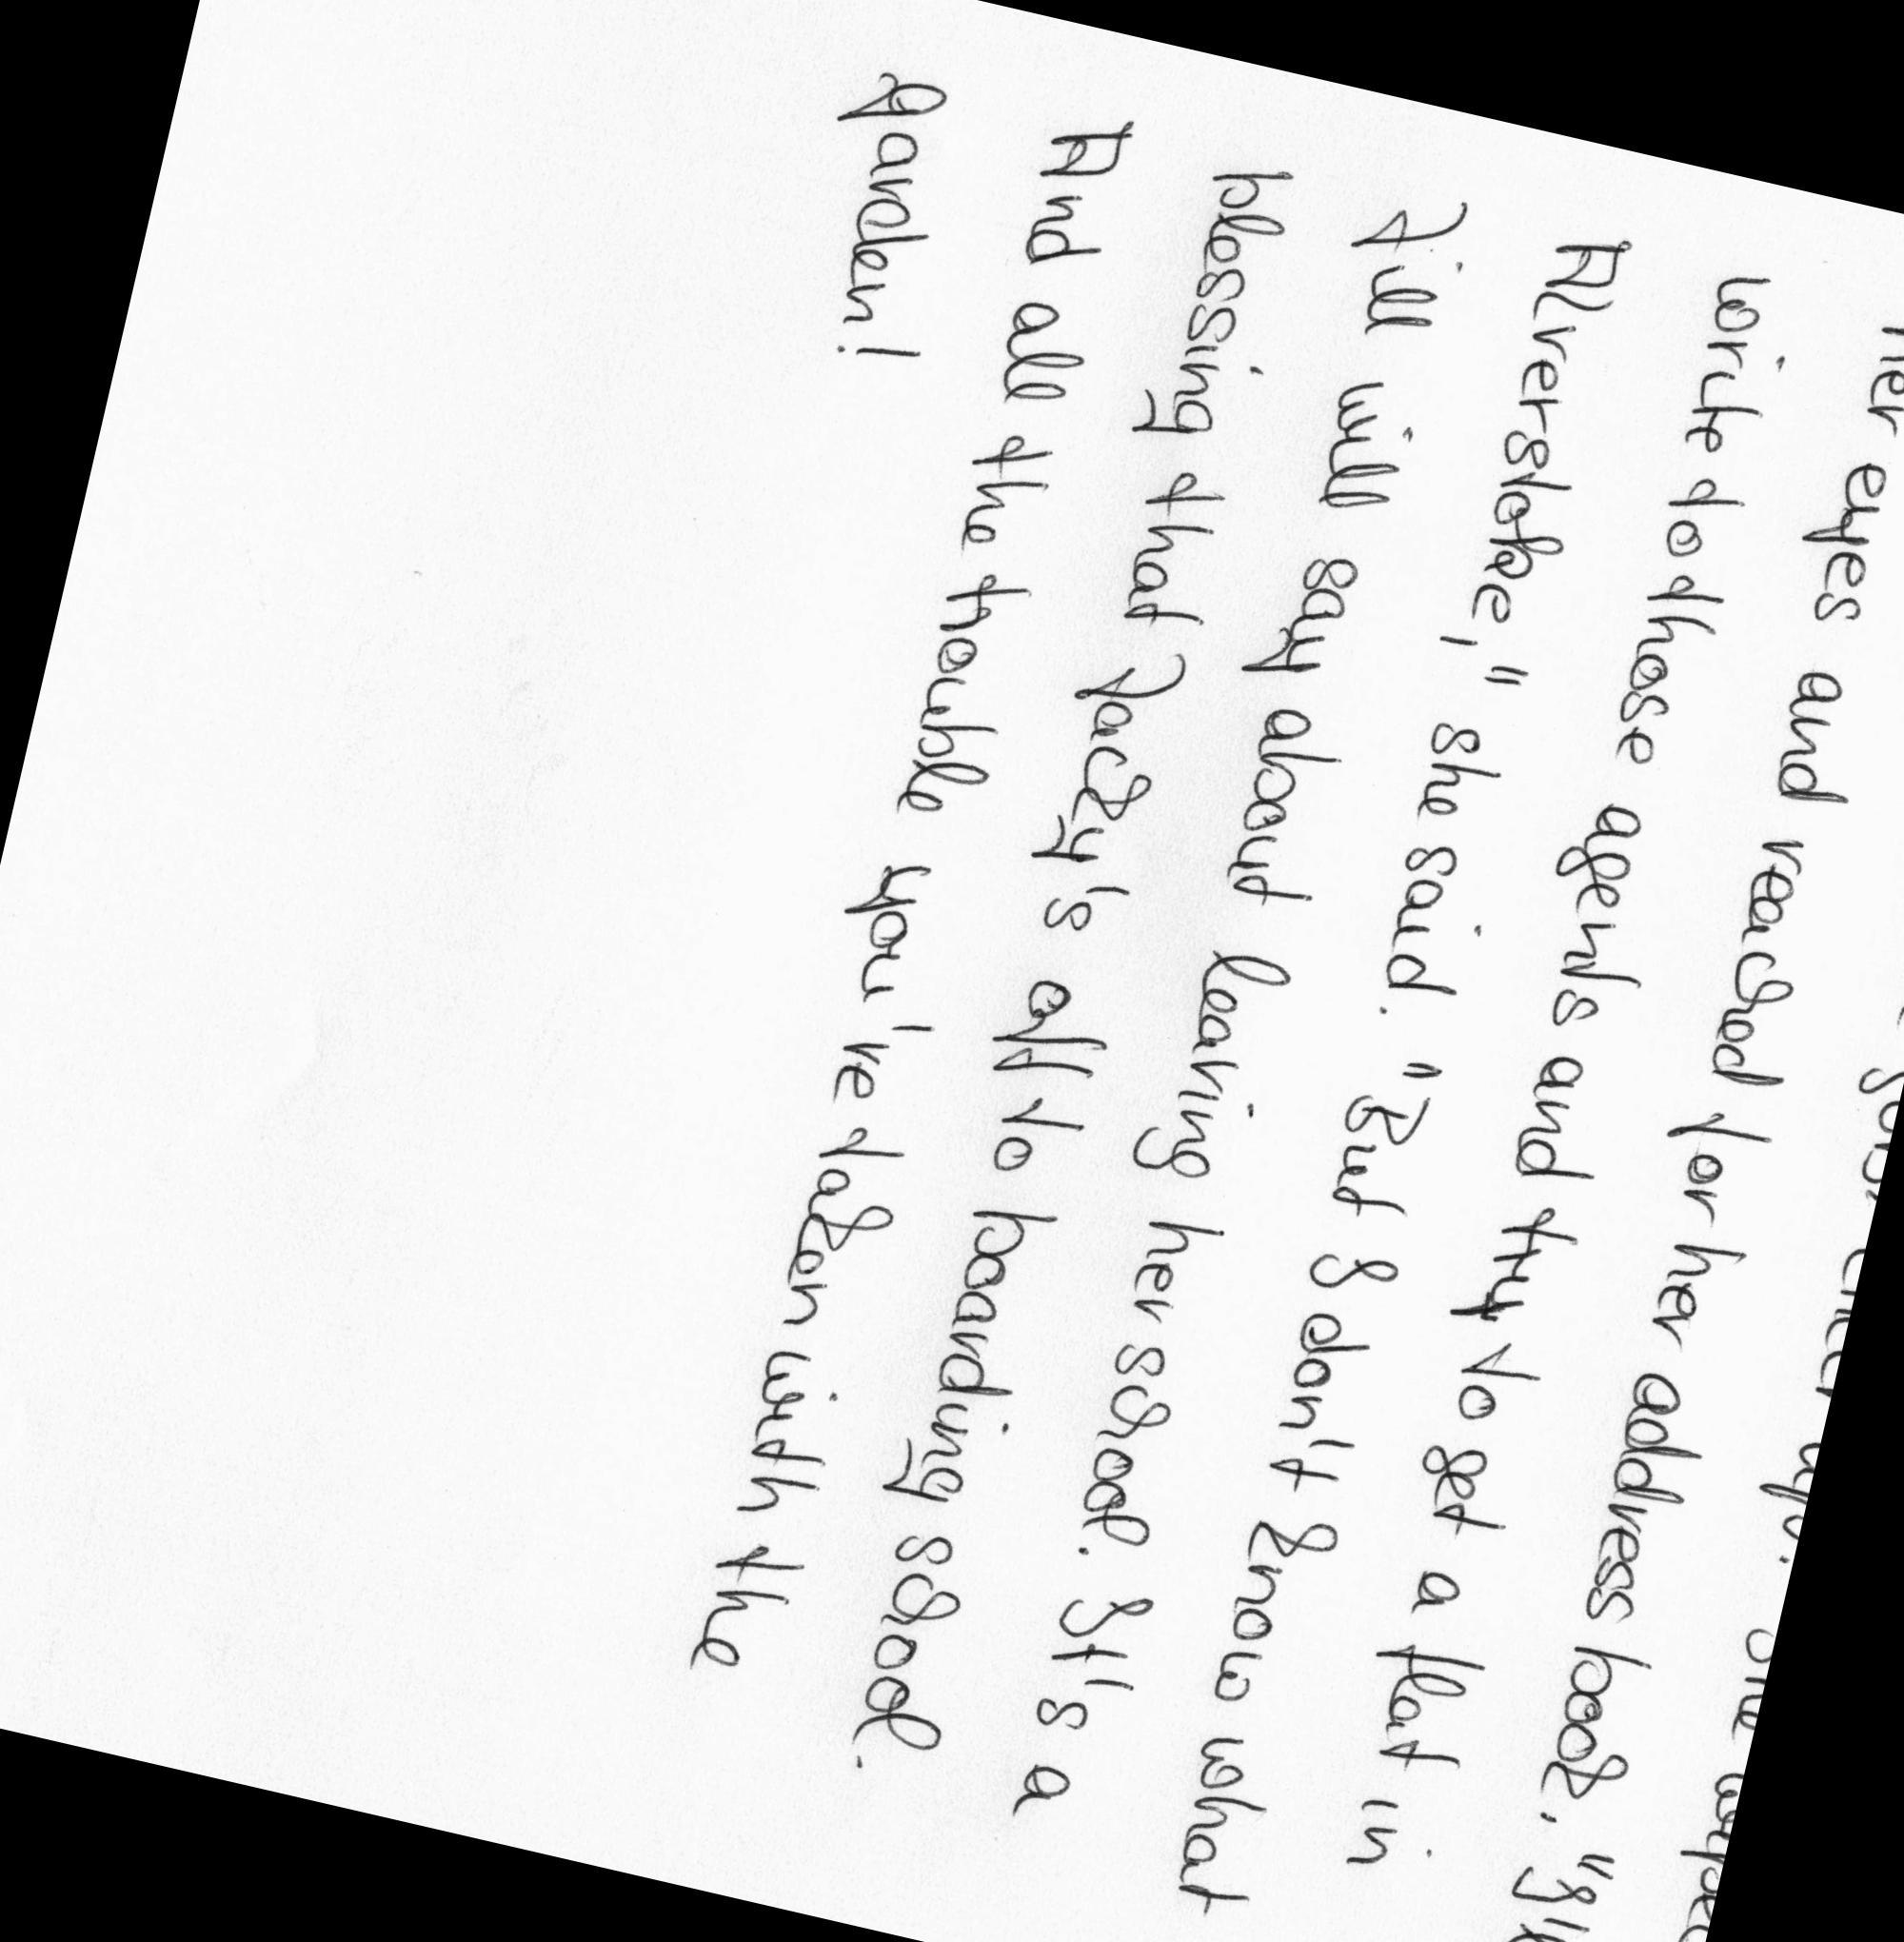 her eyes and reached for her address book. "I'll
write to those agents and try to get a flat in
Alverstoke," she said. "But I don't know what
Jill will say about leaving her school. It's a
blessing that Jacky's off to boarding school.
And all the trouble you've taken with the
garden!